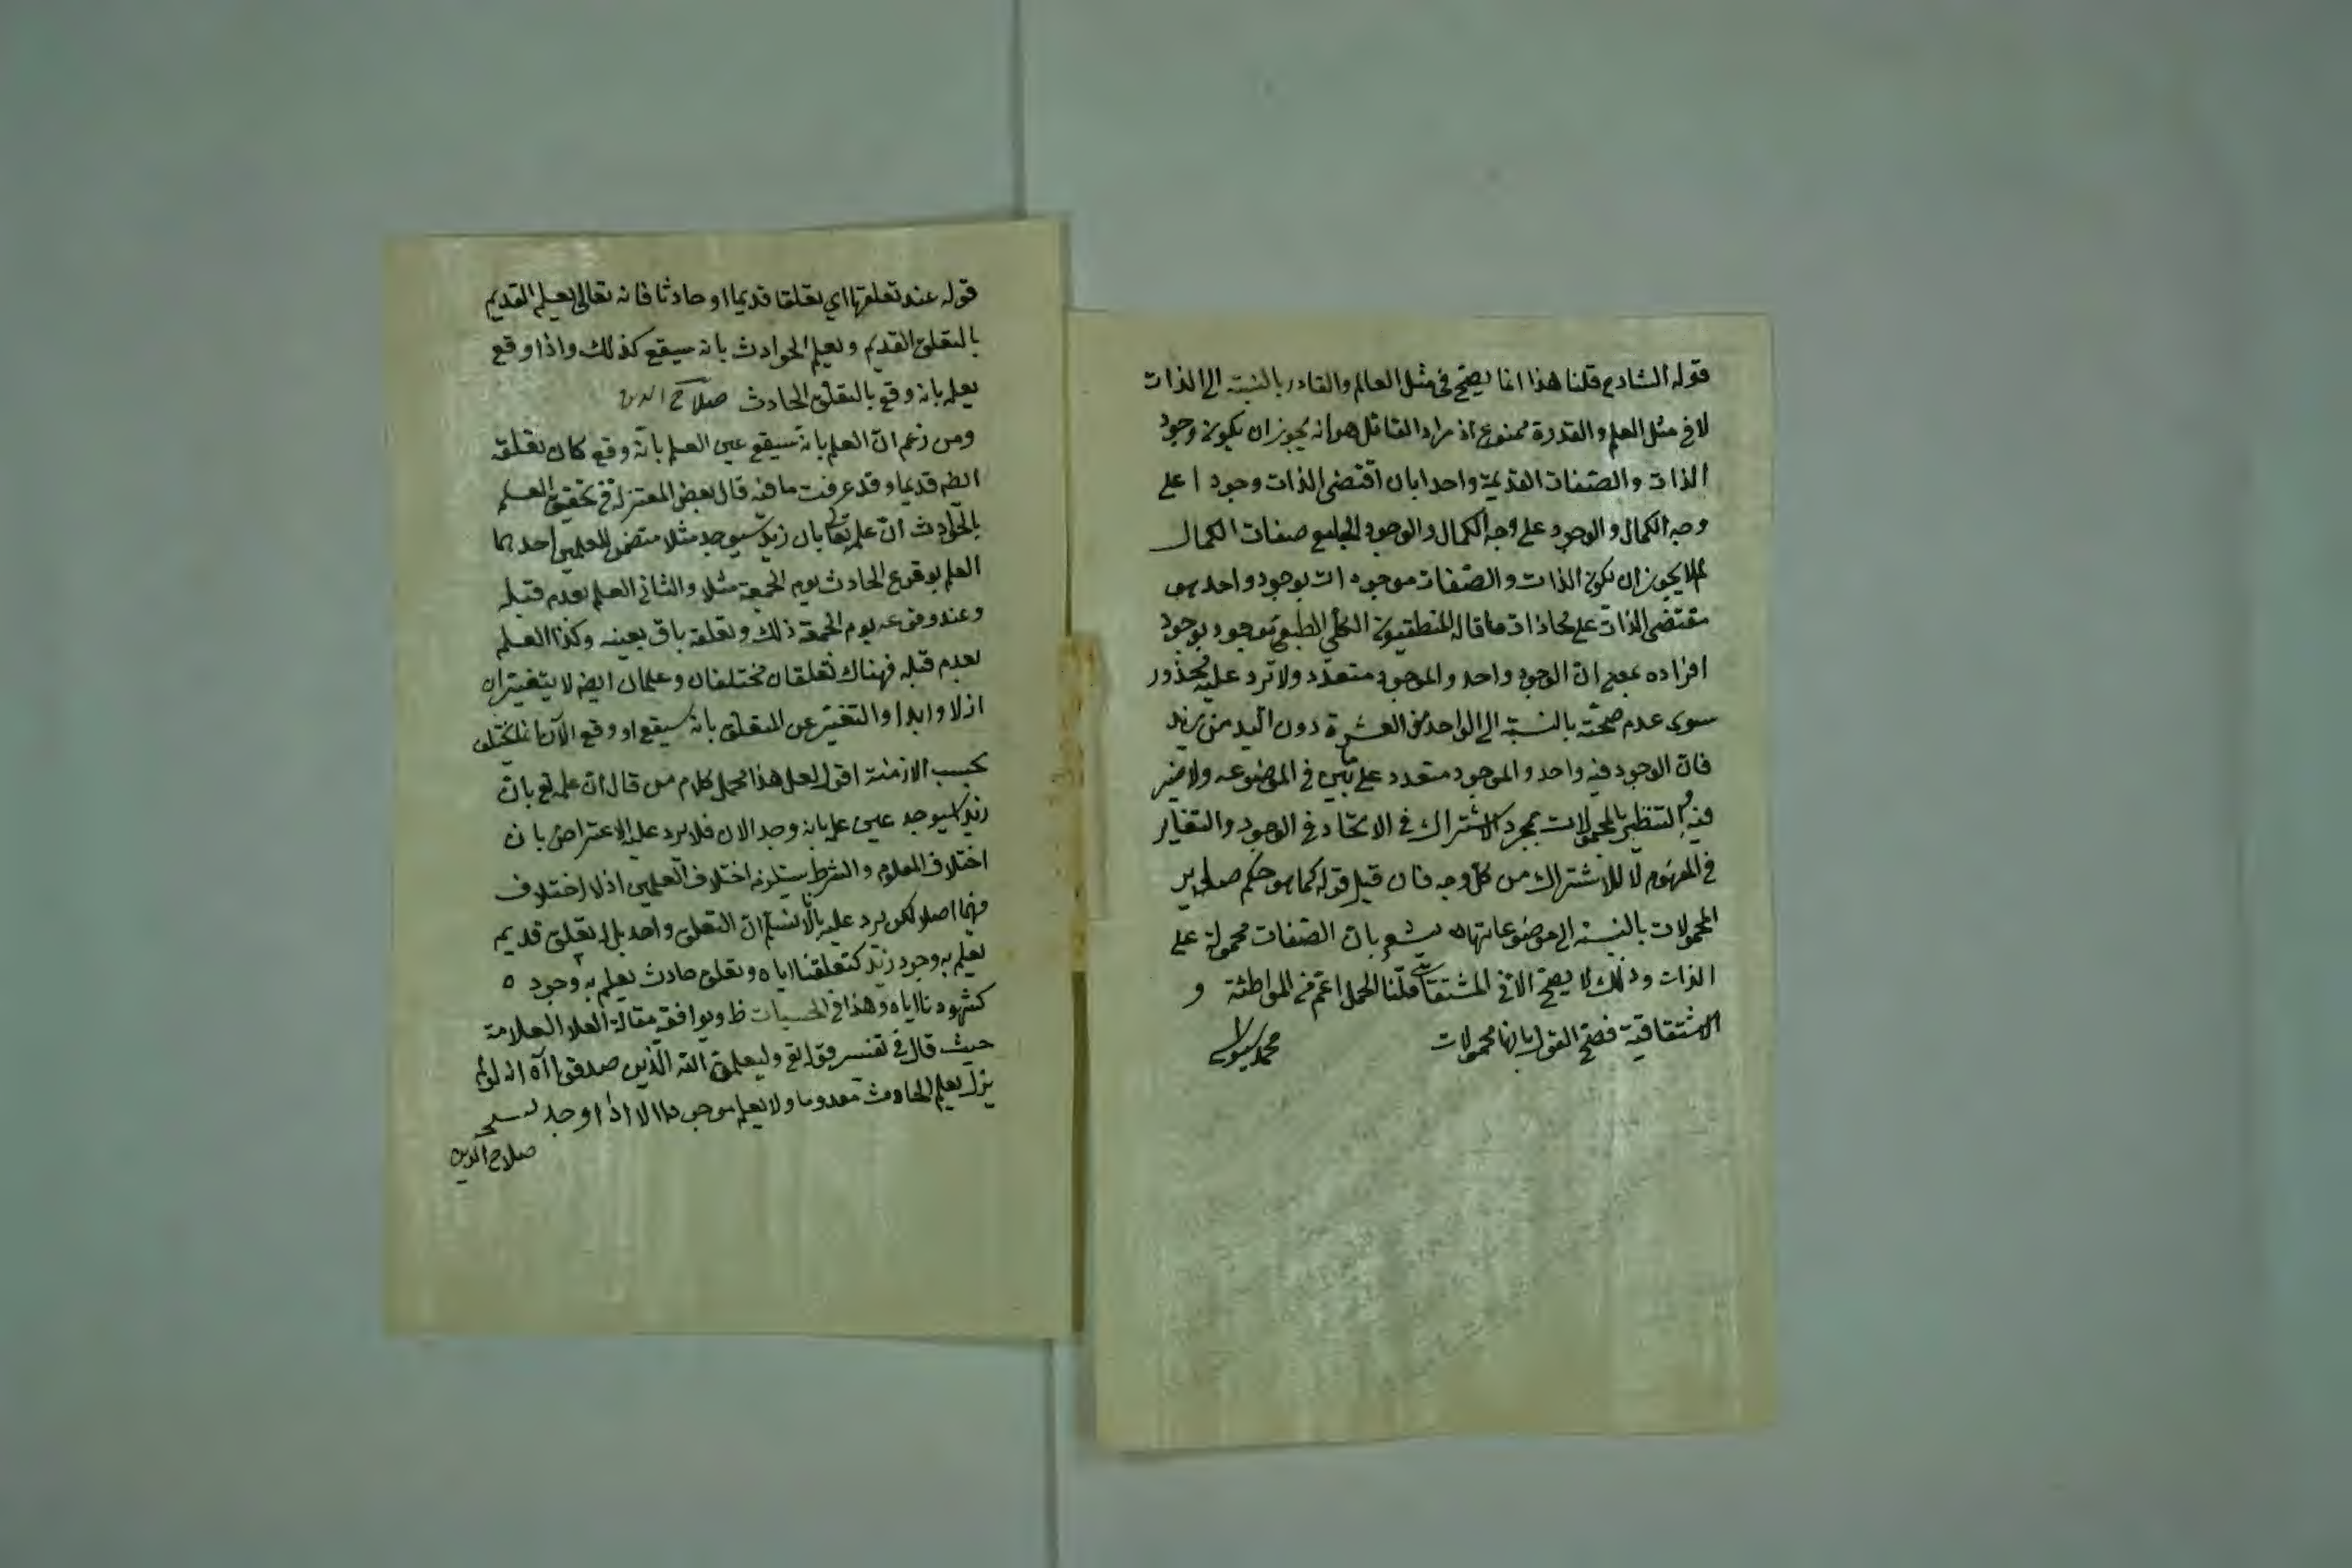 قوله الشارح قلنا هذا انما يصح في مثل العالم والقادر بالنسبة الى الذات
لا في مثل العلم والقدرة ممنوع اذ مراد القائل هو انه يجوز ان يكون وجود
الذات والصفات القديمة واحدا بان اقتضى الذات وجودا على
وجه الكمال والوجود على وجه الكمال والوجود الجامع صفات الكمال
لم لا يجوز ان يكون الذات والصفات موجودات بوجود واحد هو
مقتضى الذات على محاذات ما قاله المنطقيون الكلي الطبعي موجود بوجود
افراده بمعنى ان الوجود واحد والموجود متعدد ولا ترد عليه محذور
سوى عدم صحته بالنسبة الى الواحد من العشرة دون اليد من زيد
فان الوجود فيه واحد والموجود متعدد على ما بين في الموضوعه ولا ضير
فيه والتنظير بالمحمولات بمجرد الاشتراك في الاتحاد في الوجود والتغاير
في المفهوم لا للاشتراك من كل وجه فان قيل قوله كما هو حكم سائر
المحمولات بالنسبة الى موضوعاتها ه يشعر بان الصفات محمولة على
الذات وذلك لا يصح الا في المشتقات قلنا الحمل اعم من المواطئة و
الاشتقاقية فصح القول بانها محمولات محمد
قوله عند تعلقها اي تعلقا قديما او حادثا فانه تعالى يعلم القديم
بالتعلق القديم ويعلم الحوادث بانه سيقع كذلك واذا وقع
يعلم بانه وقع بالتعلق الحادث صلاح الدين
ومن زعم ان العلم بانه سيقع عين العلم بانه وقع كان تعلقه
ايضه قديما وقد عرفت ما فيه قال بعض المعتزلة في تحقيق العلم
بالحوادث ان علم تعالى بان زيد سيوجد مثلا متضمن للعلمين احدهما
العلم بوقوع الحادث يوم الجمعة مثلا والثاني العلم بعدم قبله
وعند وقوعه يوم الجمعة ذلك وتعلقه باق بعينه وكذا العلم
بعدم قبله فهناك تعلقان مختلفان وعلمان ايضه لا يتغيران
ازلا وابدا والتغير عن المتعلق بانه سيقع او وقع الآن
بحسب الازمنة اقول لعل هذا محمل كلام من قال ان علم تع بان
زيد سيوجد عين علم بانه وجد الآن فلا يرد عليه الاعتراض بان
اختلاف المعلوم والشرط يستلزم اختلاف العلمين اذ لا اختلاف
فيهما اصلا لكن يرد عليه بانا لا نسلم ان التعلق واحد بل له تعلق قديم
يعلم به وجود زيد كتعلقنا اياه وتعلق حادث يعلم به وجوده
كشهودنا اياه وهذا في الحسيات ظ ويوافقه مقالة العلا العلامة
حيث قال في تفسير قوله تع وليعلمن الله الذين صدقوا آه انه لم
يزل يعلم الحادث معدوما ولا يعلم موجودا الا اذا وجد
صلاح الدين